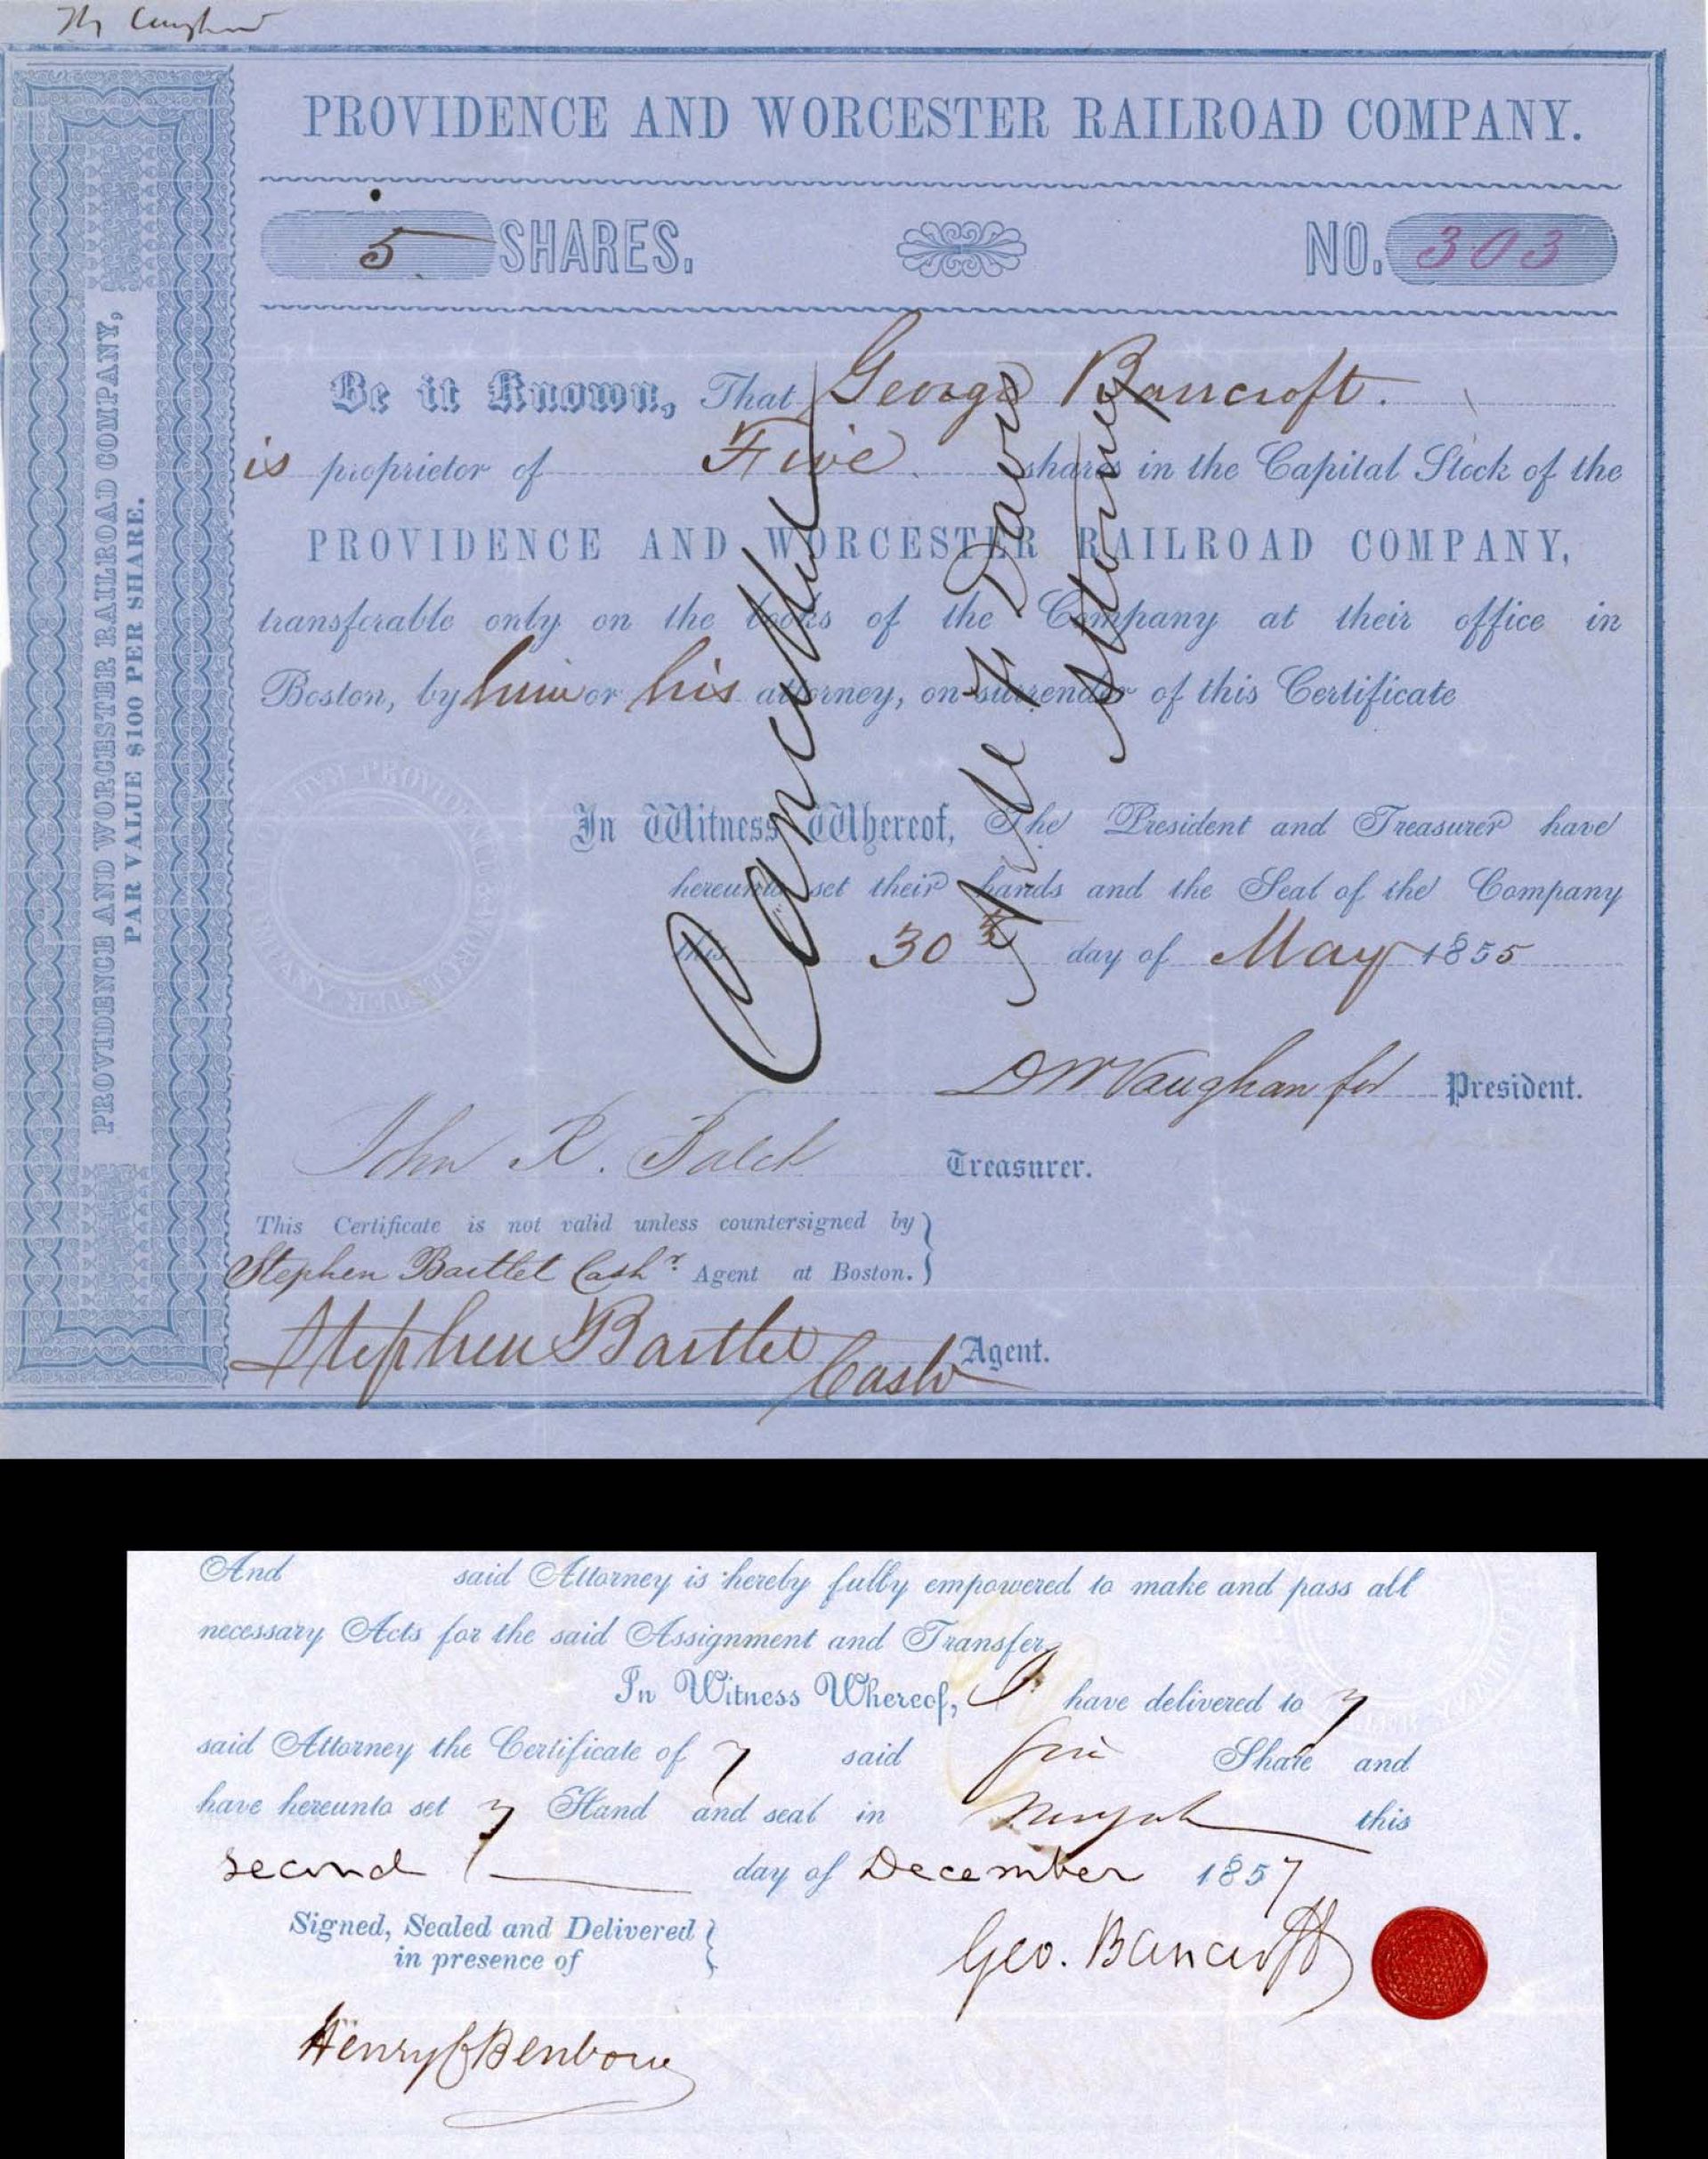 PROVIDENCE AND WORCESTER RAILROAD COMPANY.
5 SHARES. NO. 303
PROVIDENCE AND WORCESTER RAILROAD COMPANY,
PAR VALUE $100 PER SHARE.
Be it Known, That George Bancroft.
is proprietor of Five shares in the Capital Stock of the
PROVIDENCE AND WORCESTER RAILROAD COMPANY,
transferable only on the books of the Company at their office in
Boston, by him or his attorney, on surrender of this Certificate
Cancelled
Davis
Attorney
In Witness Whereof, The President and Treasurer have
hereunto set their hands and the Seal of the Company
this 30 day of May 1855
D W Vaughan for President.
John R. Balch Treasurer.
This Certificate is not valid unless countersigned by
Stephen Bartlet Cashr. Agent at Boston.
Stephen Bartlet Cashr Agent.
And said Attorney is hereby fully empowered to make and pass all
necessary Acts for the said Assignment and Transfer,
In Witness Whereof, I have delivered to my
said Attorney the Certificate of my said five Share and
have hereunto set my Hand and seal in this
second day of December 1857
Signed, Sealed and Delivered
in presence of
Geo. Bancroft
Henry